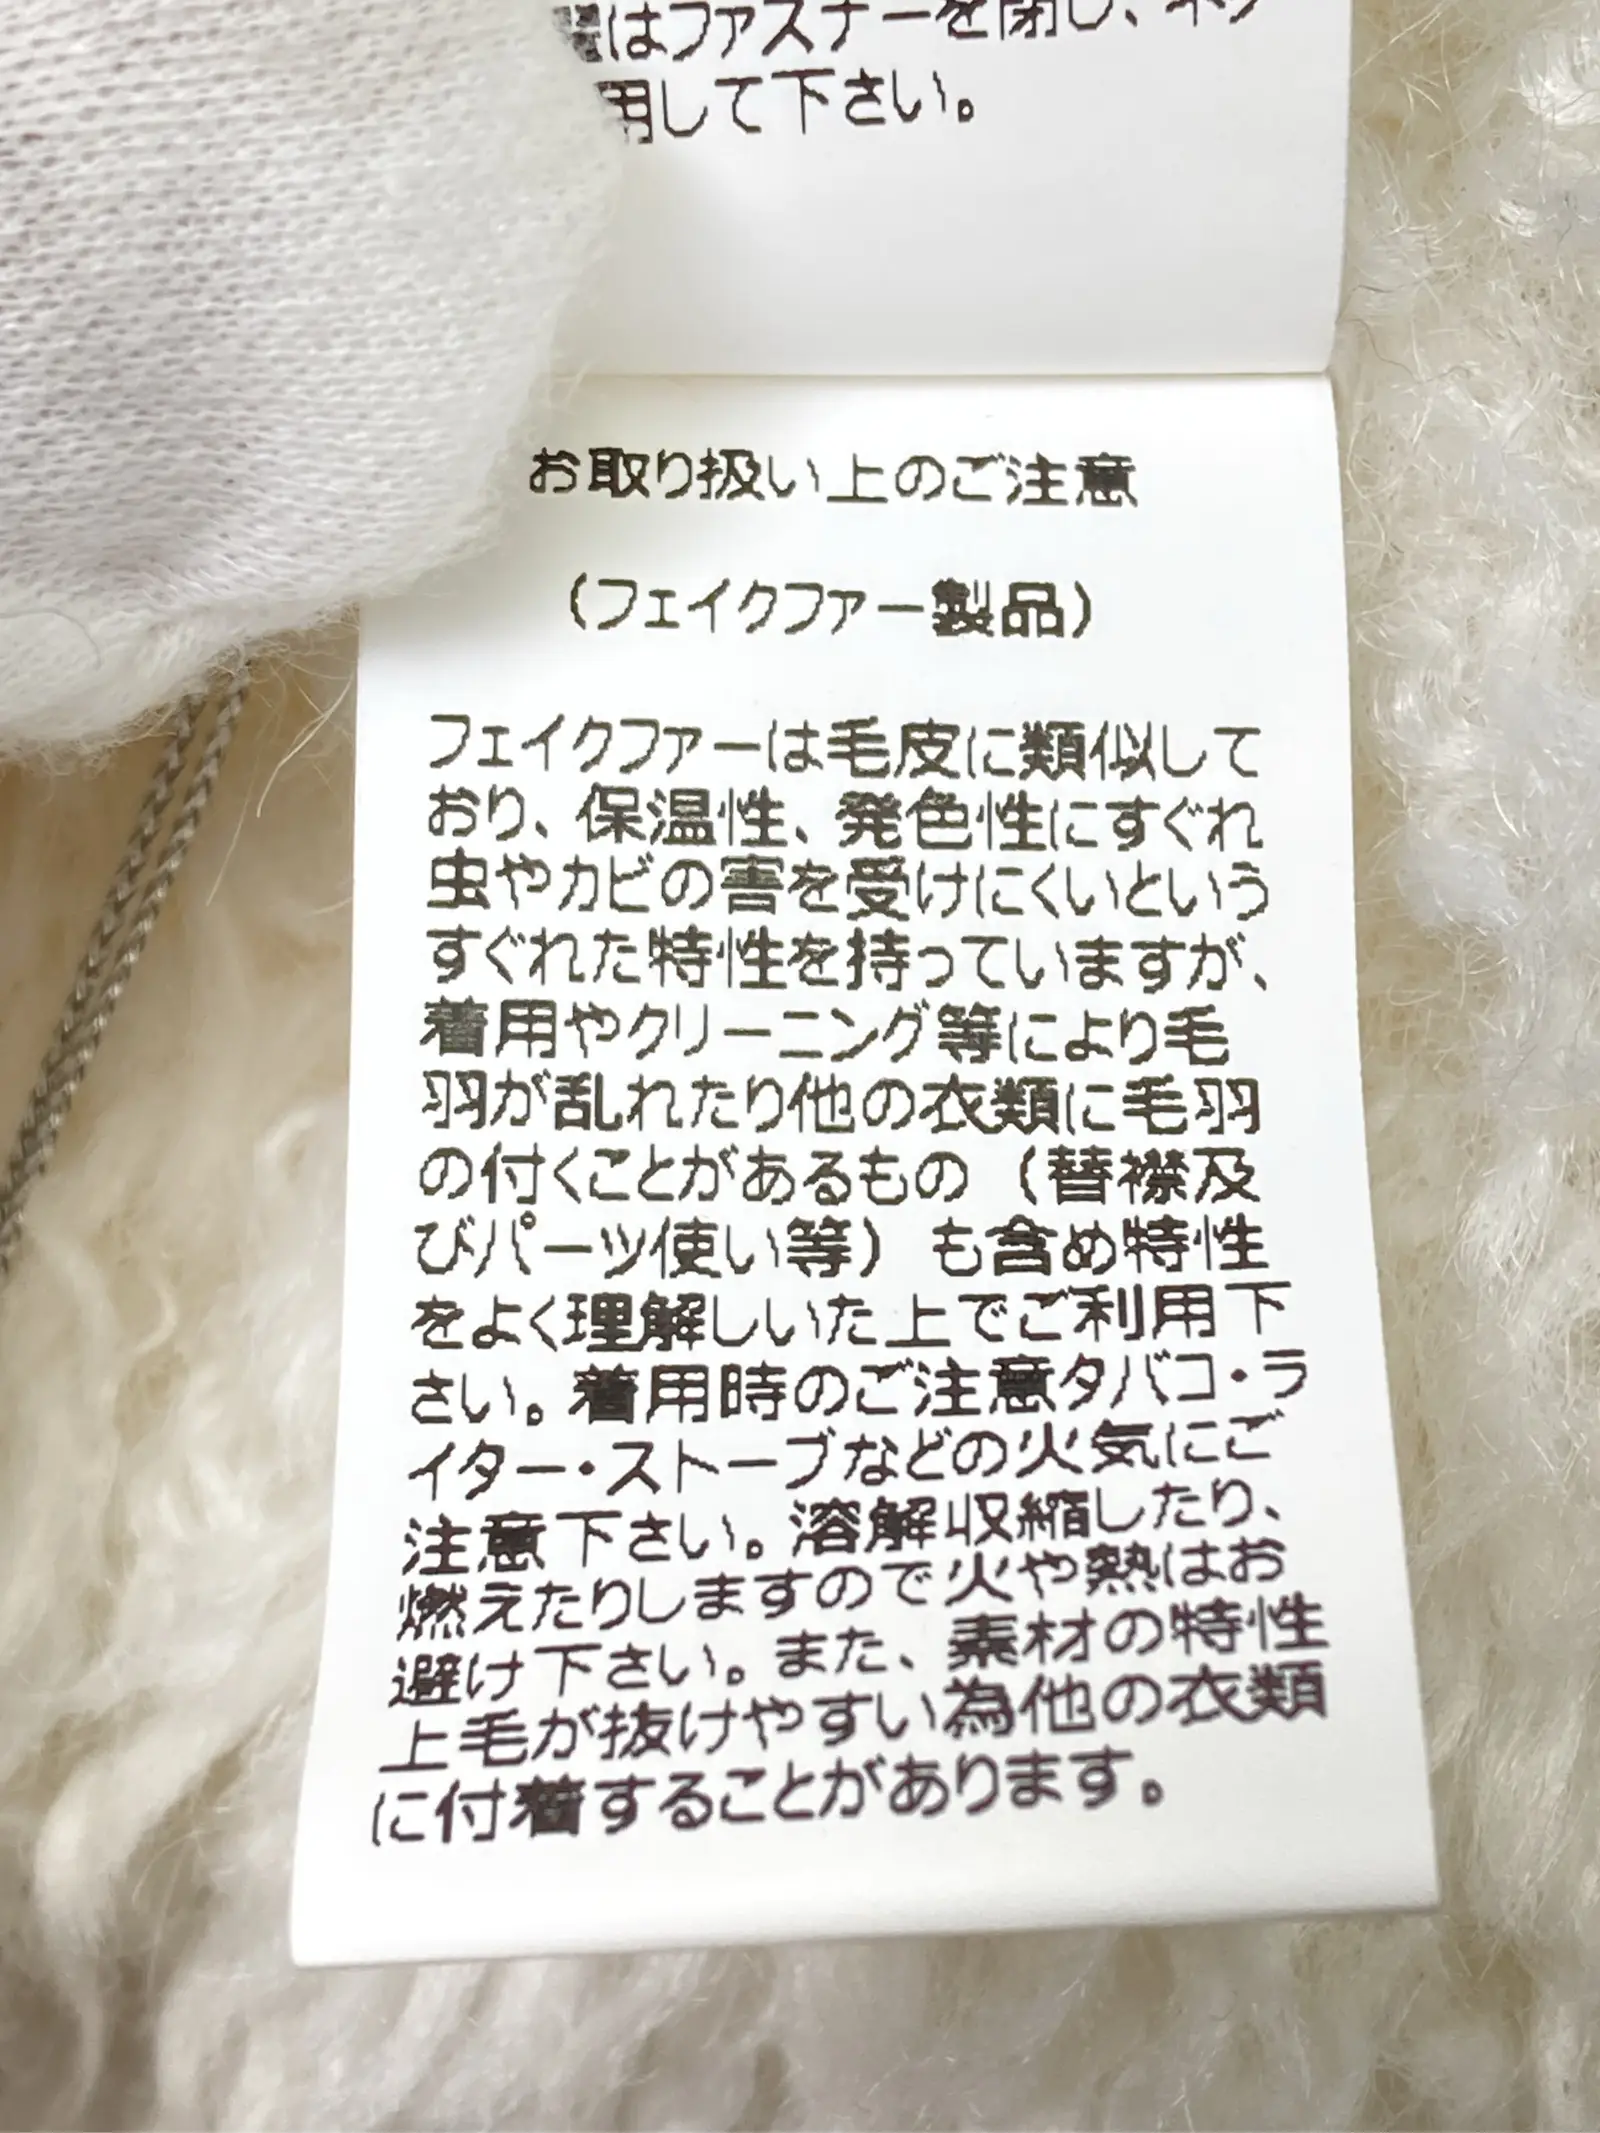 はファスナーを閉じ、ネク
用して下さい。
お取り扱い上のご注意
(フェイクファー製品)
フェイクファーは毛皮に類似して
おり、保温性、発色性にすぐれ
虫やカビの害を受けにくいという
すぐれた特性を持っていますが、
着用やクリーニング等により毛
羽が乱れたり他の衣類に毛羽
の付くことがあるもの（替襟及
びパーツ使い等）も含め特性
をよく理解しいた上でご利用下
さい。着用時のご注意タバコ・ラ
イター・ストーブなどの火気にご
注意下さい。溶解収縮したり、
燃えたりしますので火や熱はお
避け下さい。また、素材の特性
上毛が抜けやすい為他の衣類
に付着することがあります。